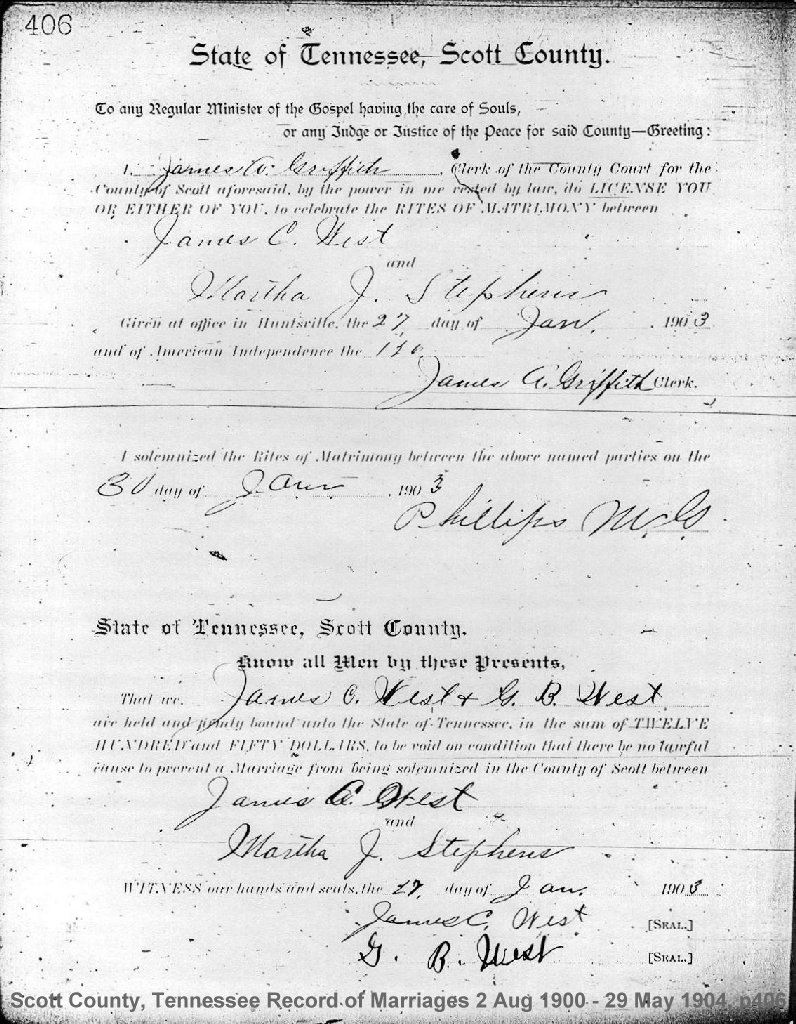 406
State of Tennessee, Scott County.
To any Regular Minister of the Gospel having the care of Souls,
or any Judge or Justice of the Peace for said County—Greeting:
I, James A. Griffith, Clerk of the County Court for the
County of Scott aforesaid, by the power in me vested by law, do LICENSE YOU
OR EITHER OF YOU, to celebrate the RITES OF MATRIMONY between
James C. West
and
Martha J. Stephens
Given at office in Huntsville, the 27 day of Jan. 1903
and of American Independence the
James A. Griffith Clerk.
I solemnized the Rites of Matrimony between the above named parties on the
30 day of Jan 1903
Phillips M.G.
State of Tennessee, Scott County.
Know all Men by these Presents,
That we, James C. West & G. B. West
are held and firmly bound unto the State of Tennessee, in the sum of TWELVE
HUNDRED and FIFTY DOLLARS, to be void on condition that there be no lawful
cause to prevent a Marriage from being solemnized in the County of Scott between
James C. West
and
Martha J. Stephens
WITNESS our hands and seals, the 27, day of Jan. 1903
James C. West [SEAL.]
G. B. West [SEAL.]
Scott County, Tennessee Record of Marriages 2 Aug 1900 - 29 May 1904, p406